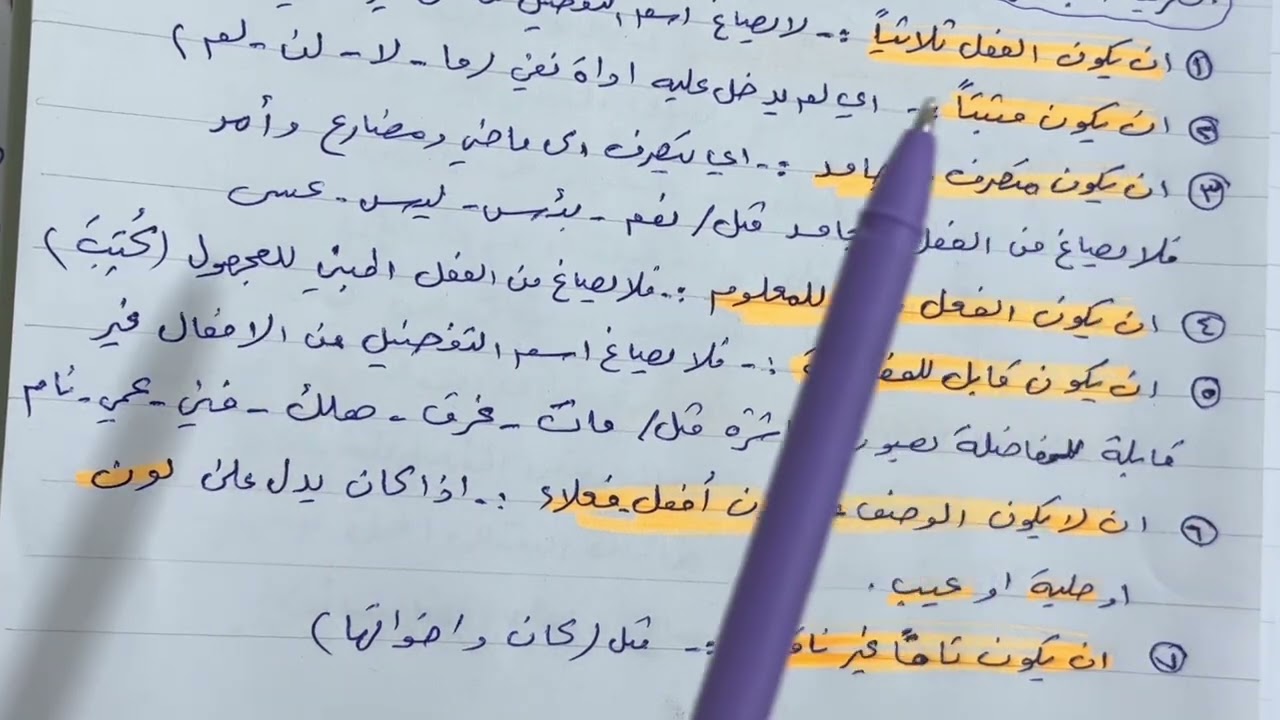 ① ان يكون الفعل ثلاثياً :- لا يصاغ اسم
② ان يكون مثبتاً :- اي لم يدخل عليه اداة نفي (ما - لا - لن - لم)
③ ان يكون متصرف :- اي يتصرف الى ماضي ومضارع وأمر
فلا يصاغ من الفعل جامد مثل/ نعم - بئس - ليس - عسى
④ ان يكون الفعل للمعلوم :- فلا يصاغ من الفعل المبني للمجهول (كُتِبَ)
⑤ ان يكون قابل :- فلا يصاغ اسم التفضيل من الافعال غير
قابلة للمفاضلة مثل/ مات - غرق - هلك - فني - عمي - نام
⑥ ان لا يكون الوصف أفعل فعلاء :- اذا كان يدل على لون
او حلية او عيب .
⑦ ان يكون تاماً غير :- مثل (كان واخواتها)